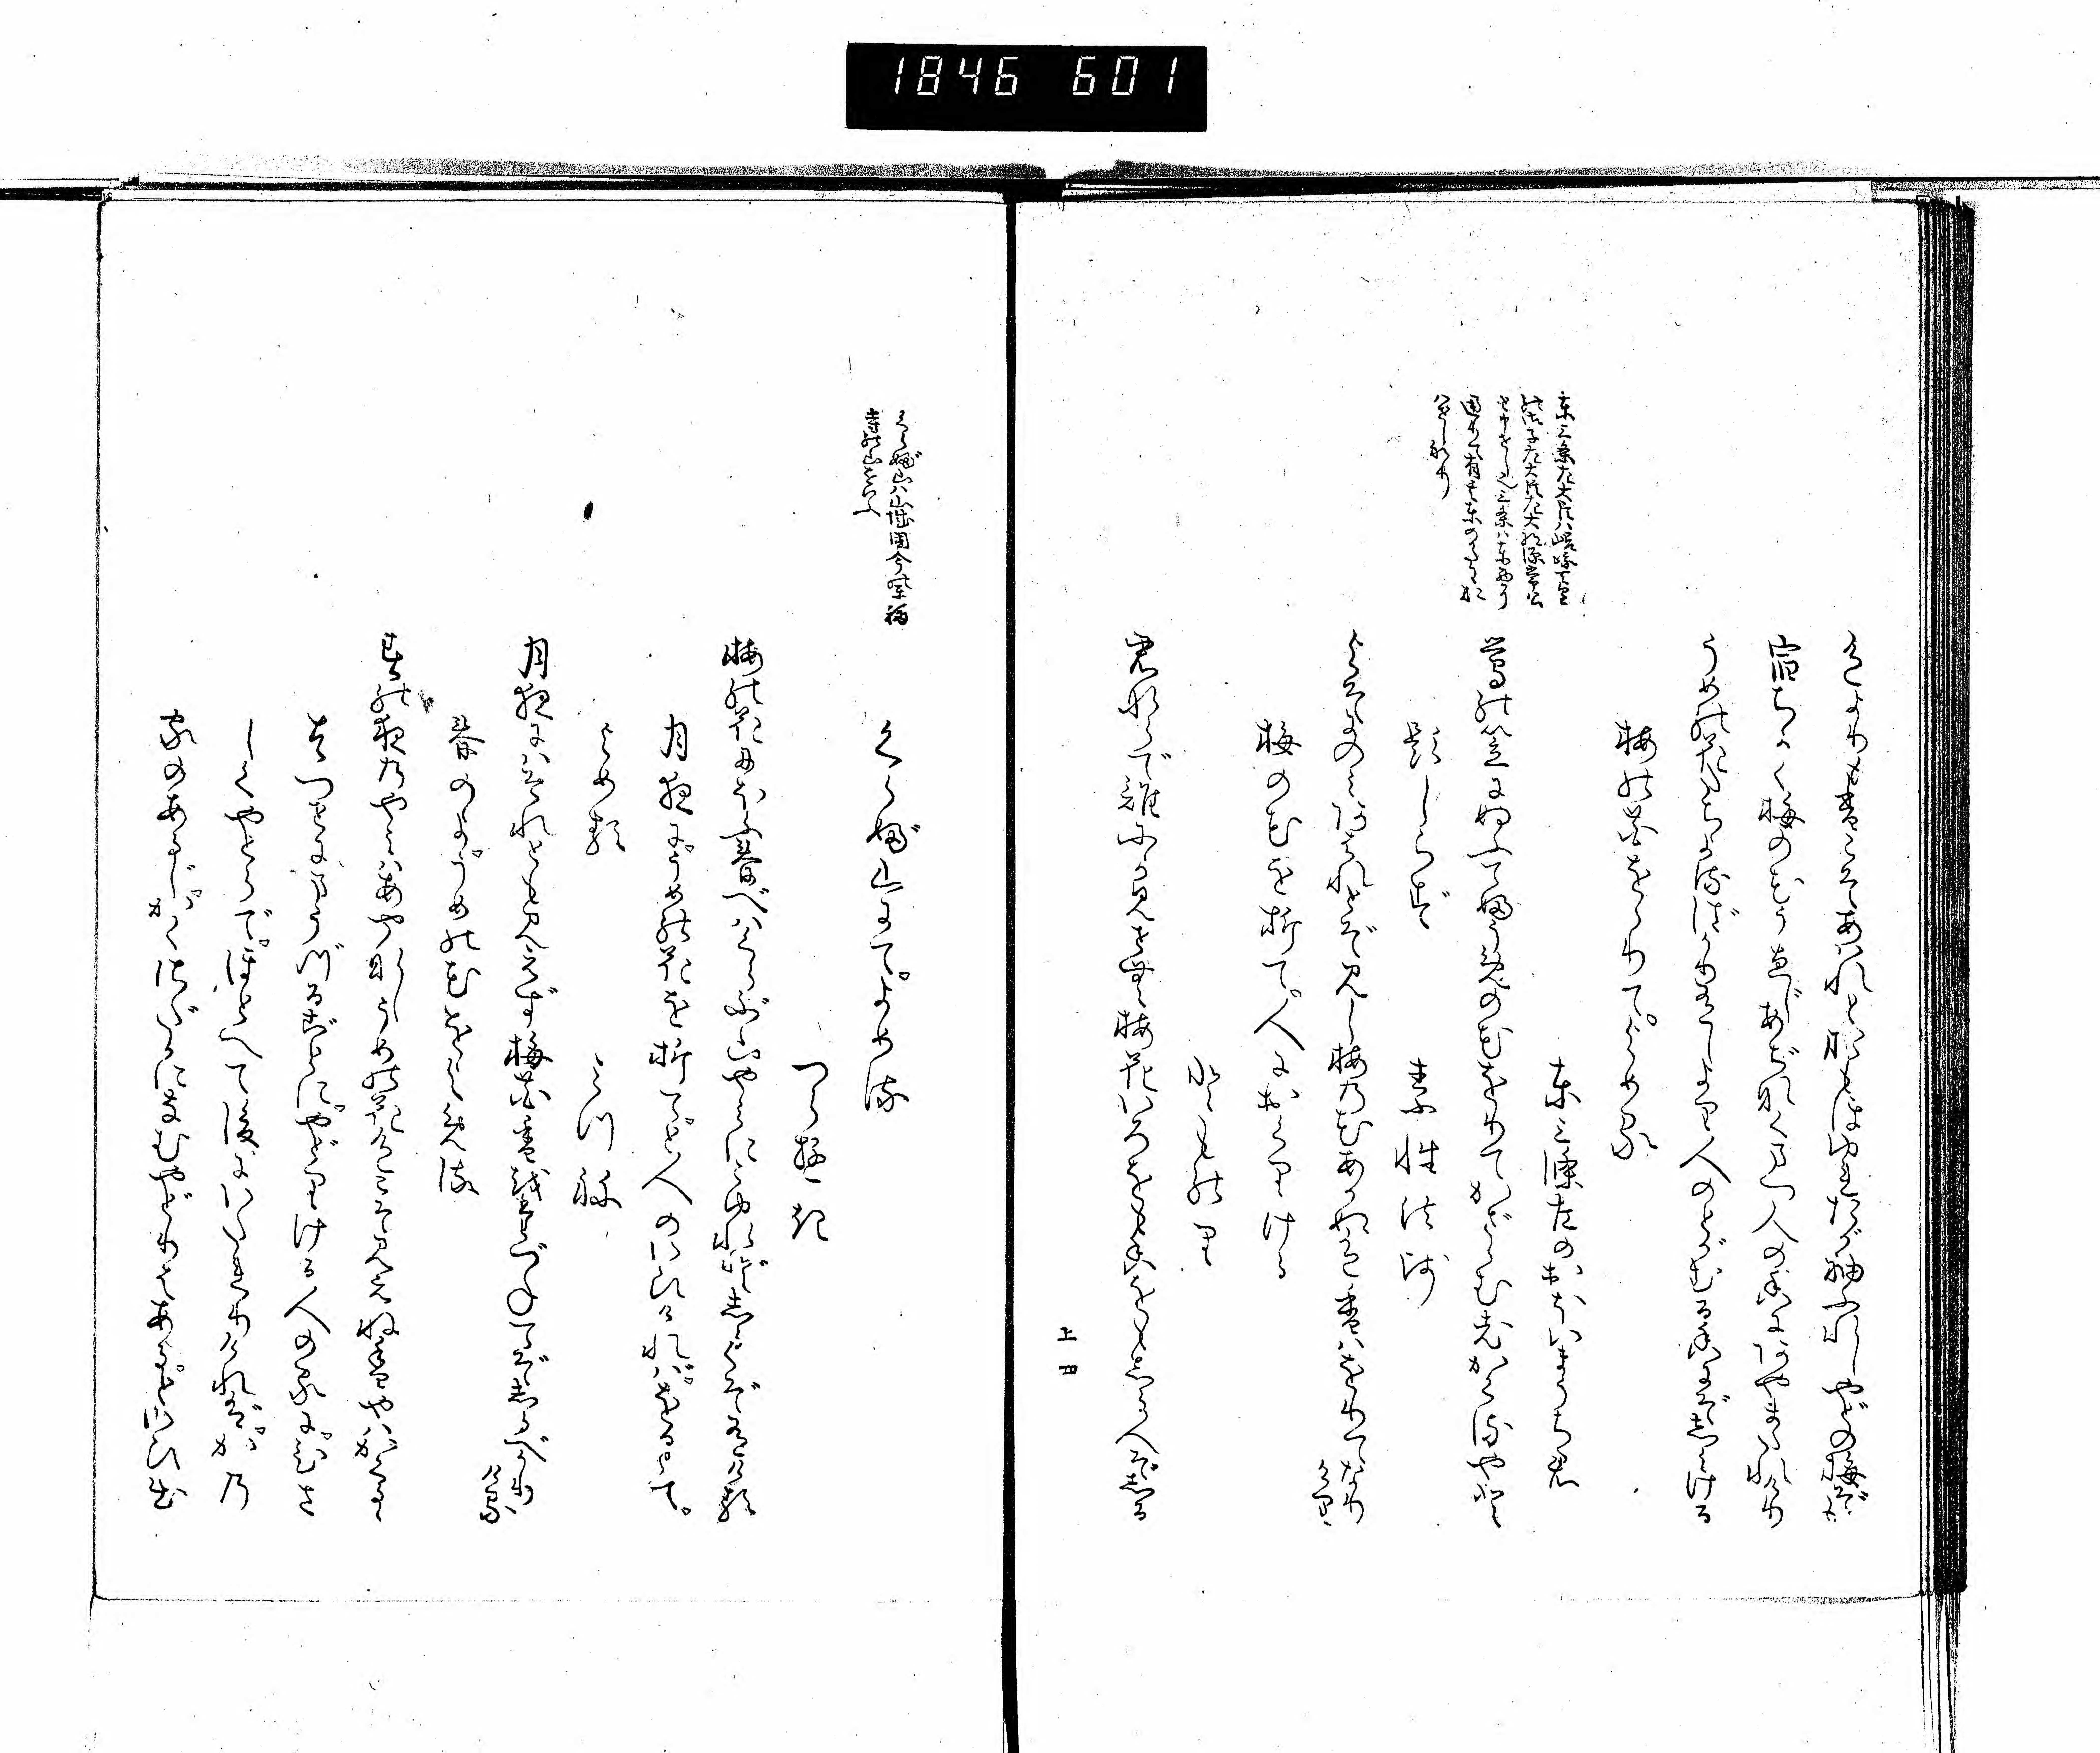 1846 601
色よりも香こそあはれとおもほゆれたが袖ふれしやどの梅ぞも
宿ちかく梅の花うゑじあぢきなくまつ人の香にあやまたれけり
うめの花たちよるばかりありしより人のとがむる香にぞしみける
梅の花ををりて。よめる
東三條左のおほいまうち君
鶯の笠にぬふてふうめの花をりてかざさむ老かくるやと
題しらず
素性法師
よそにのみあはれとぞ見し梅の花あかぬ色香はをりてなり
けり
梅の花を折て。人におくりける
とものり
君ならで誰にか見せむ梅花いろをも香をもしる人ぞしる
上四
くらぶ山にて。よめる
つらゆき
梅の花にほふ春べはくらぶ山やみにこゆれどしるくぞ有ける
月夜に。うめの花を折て。と人のいひければ。をるとて。
よめる
みつね
月夜にはそれとも見えず梅花香を尋てぞしるべかり
ける
春のよ。うめの花をよめる
春の夜のやみはあやなしうめの花色こそ見えね香やはかくるる
はつせにまうづるごとに。やどりける人の家に。ひさ
しくやどらで。ほどへて後にいたれりければ。かの
家のあるじ。かくさだかになむやどりはあると。いひ出